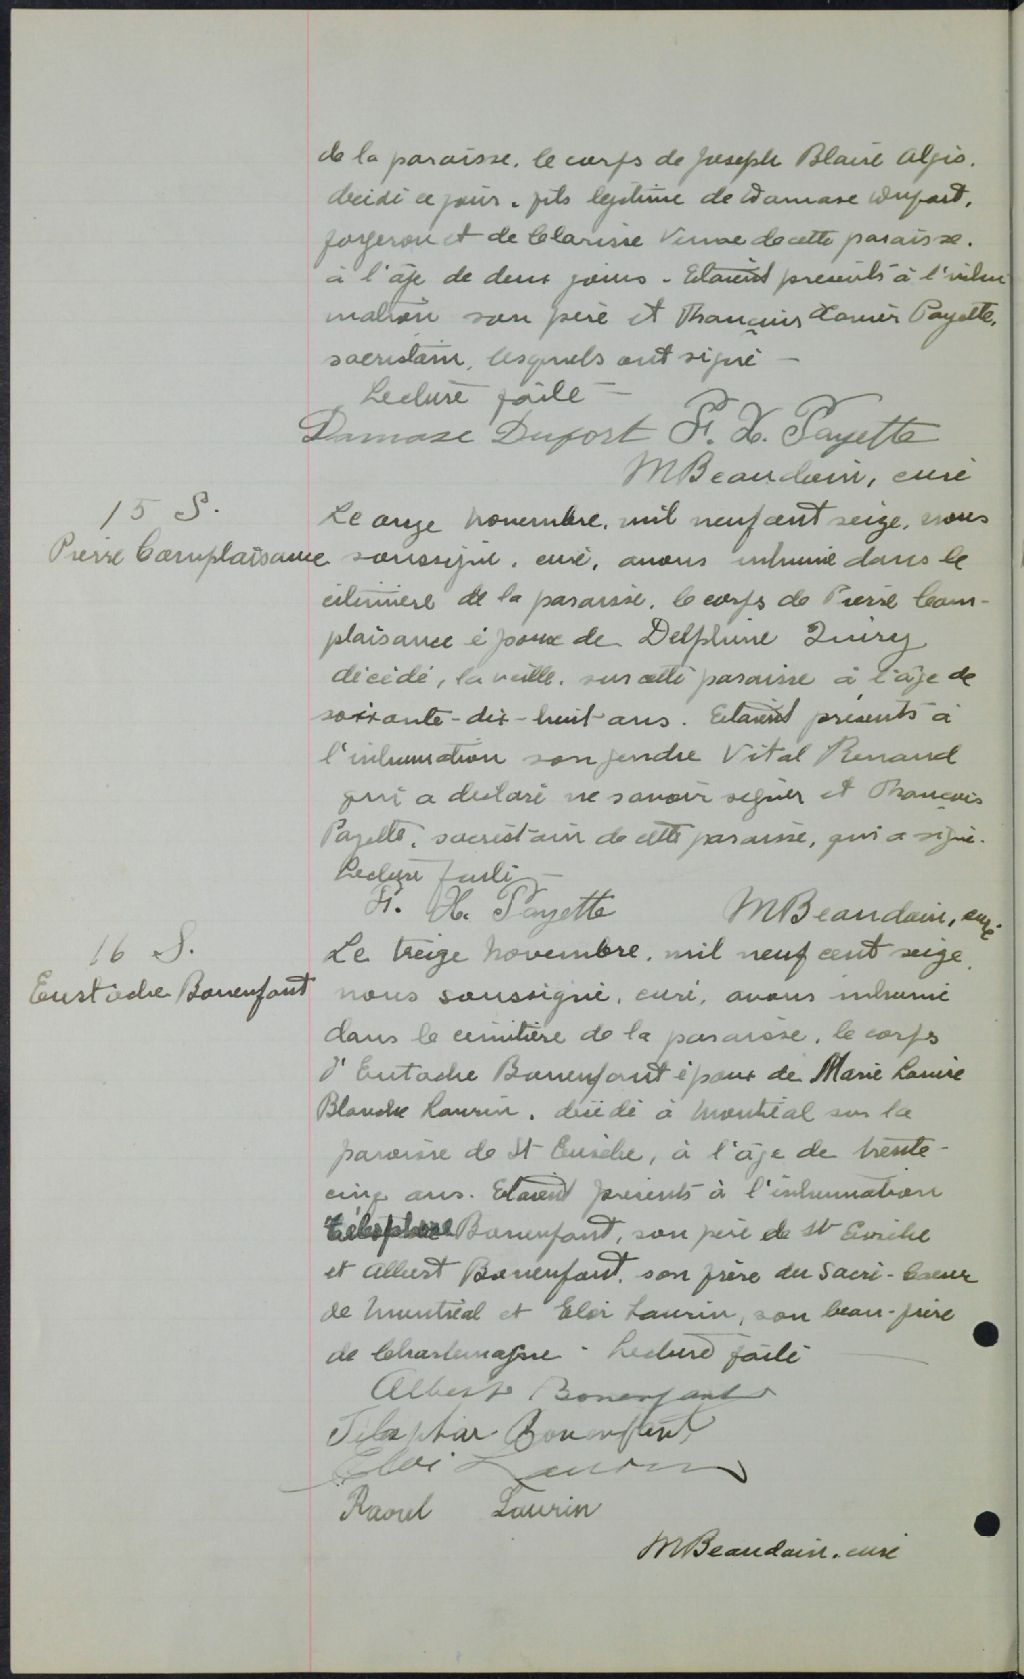 de la paroisse, le corps de Joseph Blaise Algis,
décédé ce jour, fils légitime de Damase Dufort,
forgeron et de Clarisse Venne de cette paroisse,
à l'âge de deux jours - Etaient présents à l'inhu
mation son père et François Xavier Payette,
sacristain, lesquels ont signé -
Lecture faite -
Damase Dufort F. X. Payette
M Beaudoin, curé
15 S.
Pierre Complaisance
Le onze novembre, mil neuf cent seize, nous
soussigné, curé, avons inhumé dans le
cimetière de la paroisse, le corps de Pierre Com-
plaisance époux de Delphine
décédé, la veille, sur cette paroisse à l'âge de
soixante-dix-huit ans. Etaient présents à
l'inhumation son gendre Vital Renaud
qui a déclaré ne savoir signer et François
Payette, sacristain de cette paroisse, qui a signé.
Lecture faite -
F. X. Payette M Beaudoin, curé
16 S.
Eustache Bonenfant
Le treize novembre, mil neuf cent seize,
nous soussigné, curé, avons inhumé
dans le cimetière de la paroisse, le corps
d'Eutache Bonenfant époux de Marie Louise
Blanche Laurin, décédé à Montréal sur la
paroisse de St Eusèbe, à l'âge de trente-
cinq ans. Etaient présents à l'inhumation
Télesphore Bonenfant, son père de St Eusèbe
et Albert Bonenfant, son frère du Sacré-Coeur
de Montréal et Eloi Laurin, son beau-père
de Charlemagne - Lecture faite
Albert Bonenfant
Bonenfant
Eloi Laurin
Raoul Laurin
M Beaudoin, curé